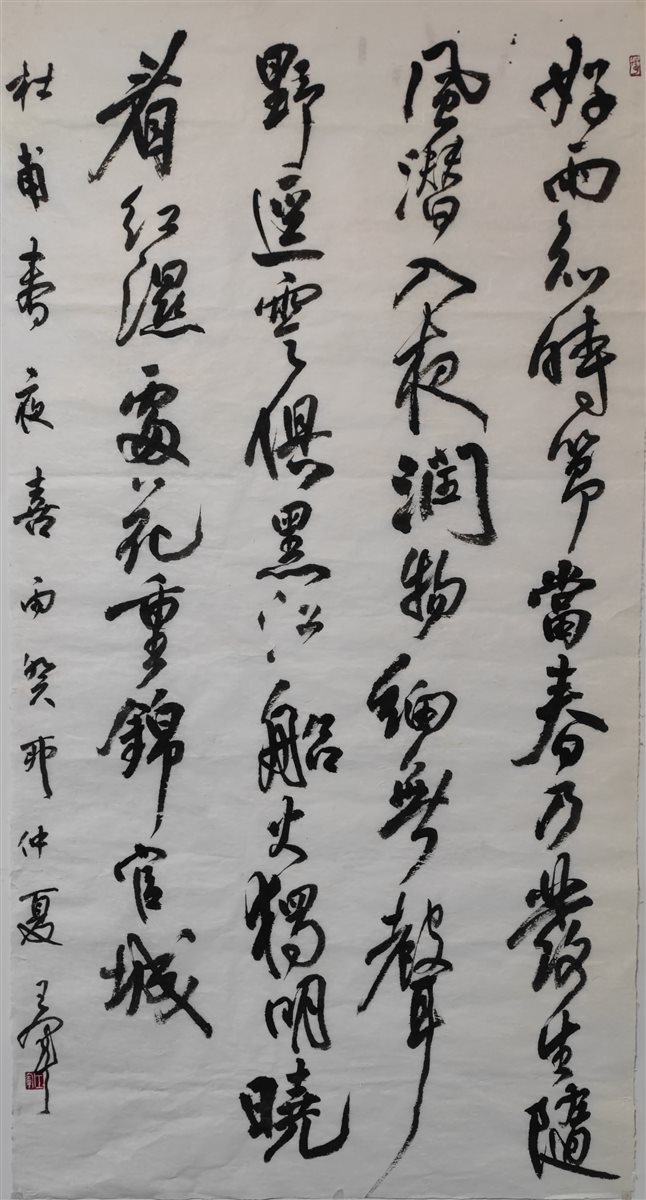 好雨知時節當春乃發生隨
風潛入夜潤物細無聲
野逕雲俱黑江船火獨明曉
看紅濕處花重錦官城
杜甫春夜喜雨癸卯仲夏王